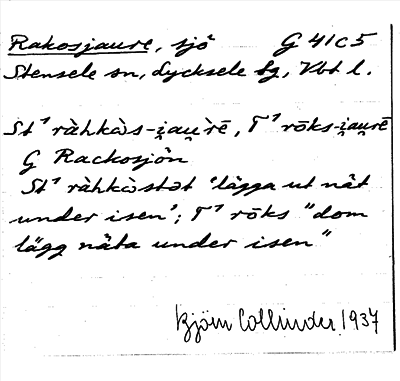 Rakosjaure, sjö G 41c5
Stensele sn, Lycksele lg, Vbt l.
St¹ ràhkàs-i̯au̯rē, T¹ rōks-i̯au̯rē
G Rackosjön
St¹ ràhkàstət 'lägga ut nät
under isen'; T¹ rōks "dom
lägg näta under isen"
Björn Collinder 1937